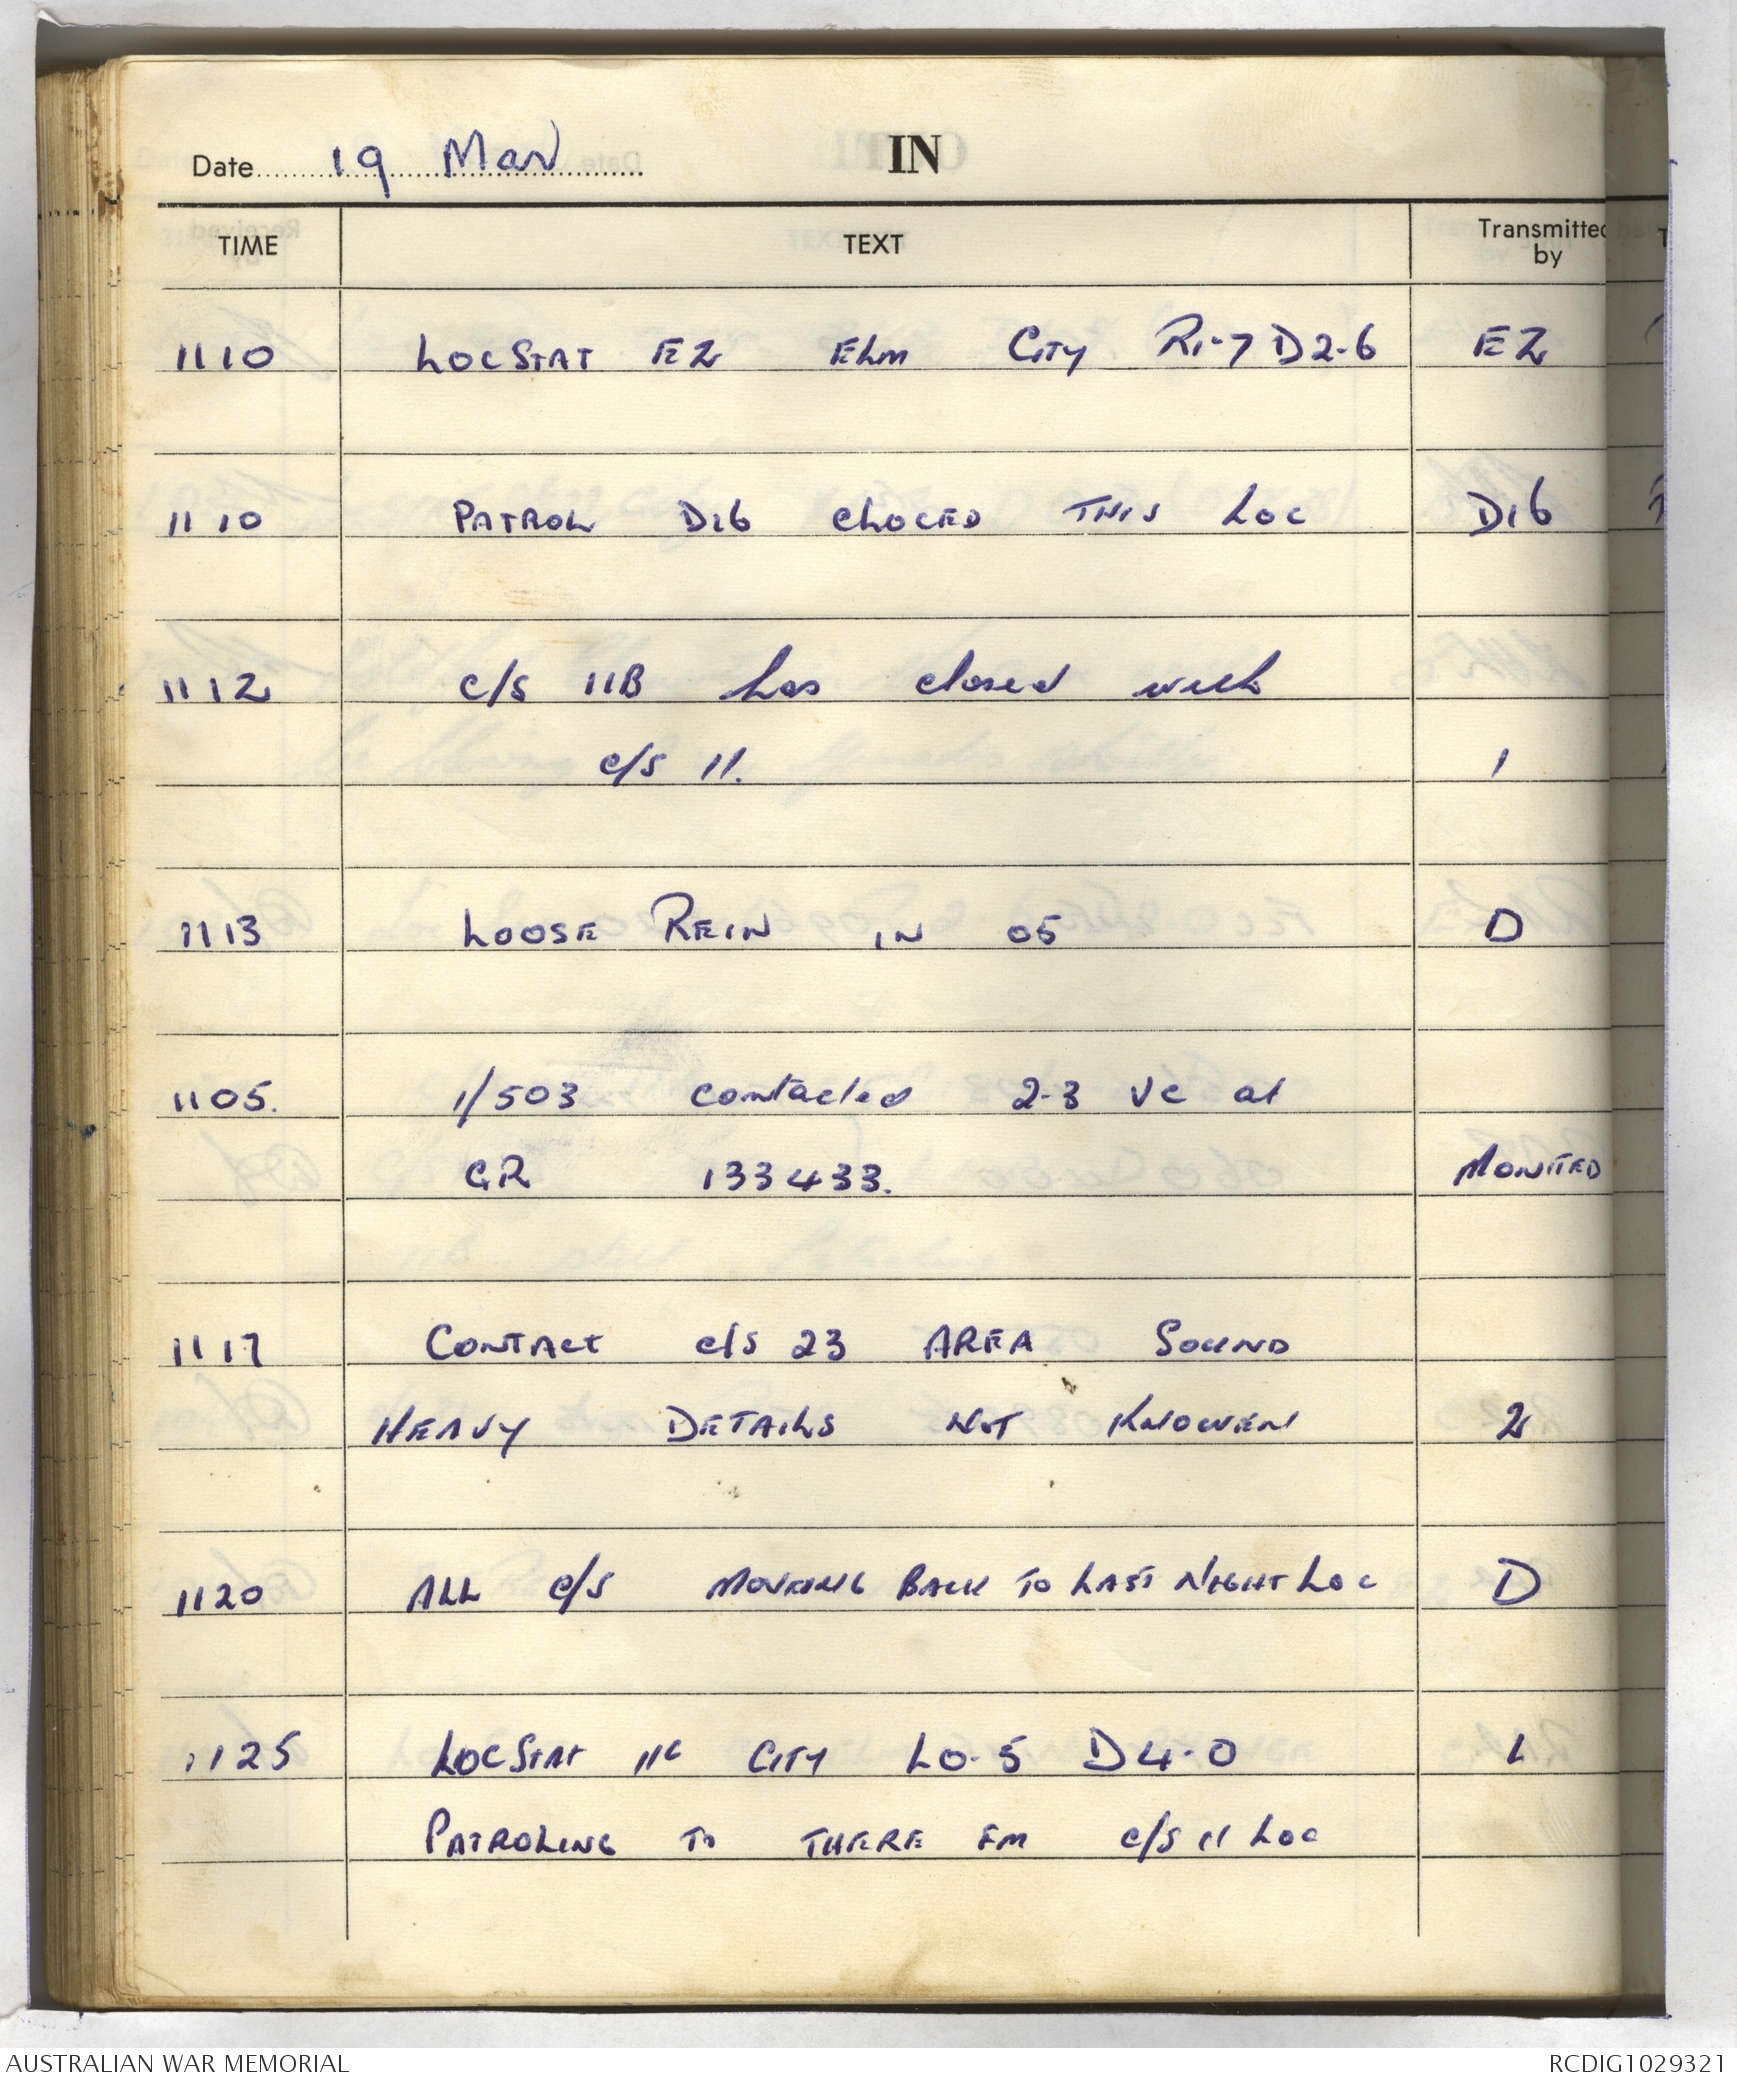 Date 19 Mar IN
TIME TEXT Transmitted by
1110 LOCSTAT E2 ELM CITY R1-7 D2-6 E2
1110 PATROL D16 CLOCED THIS LOC D16
1112 c/s 11B has closed with
c/s 11. 1
1113 LOOSE REIN IN 05 D
1105. 1/503 contacted 2-3 VC at
GR 133433. MONITED
1117 CONTACT c/s 23 AREA SOUND
HEAVY DETAILS NOT KNOWEN 2
1120 ALL c/s MOVEING BACK TO LAST NIGHT LOC D
1125 LOCSTAT 11C CITY L0-5 D4-0 1
PATROLING TO THERE FM c/s 11 LOC
AUSTRALIAN WAR MEMORIAL RCDIG1029321